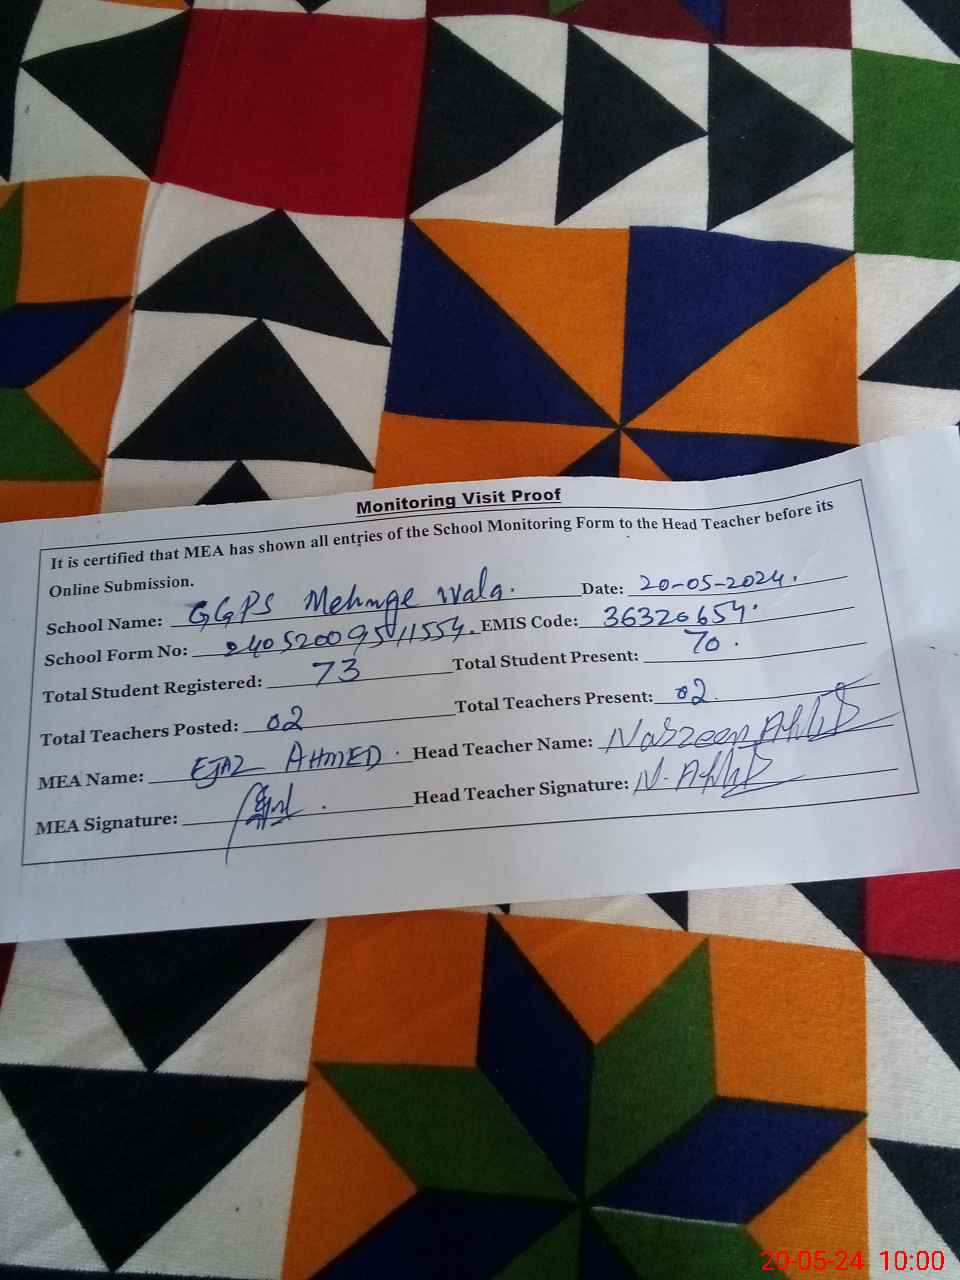 Monitoring Visit Proof
It is certified that MEA has shown all entries of the School Monitoring Form to the Head Teacher before its
Online Submission.
School Name: GGPS Mehnge wala. Date: 20-05-2024.
School Form No: EMIS Code: 36320654.
Total Student Registered: 73 Total Student Present: 70.
Total Teachers Posted: 02 Total Teachers Present: 02.
MEA Name: EJAZ AHMED. Head Teacher Name: Nasreen
MEA Signature: Head Teacher Signature:
20-05-24 10:00